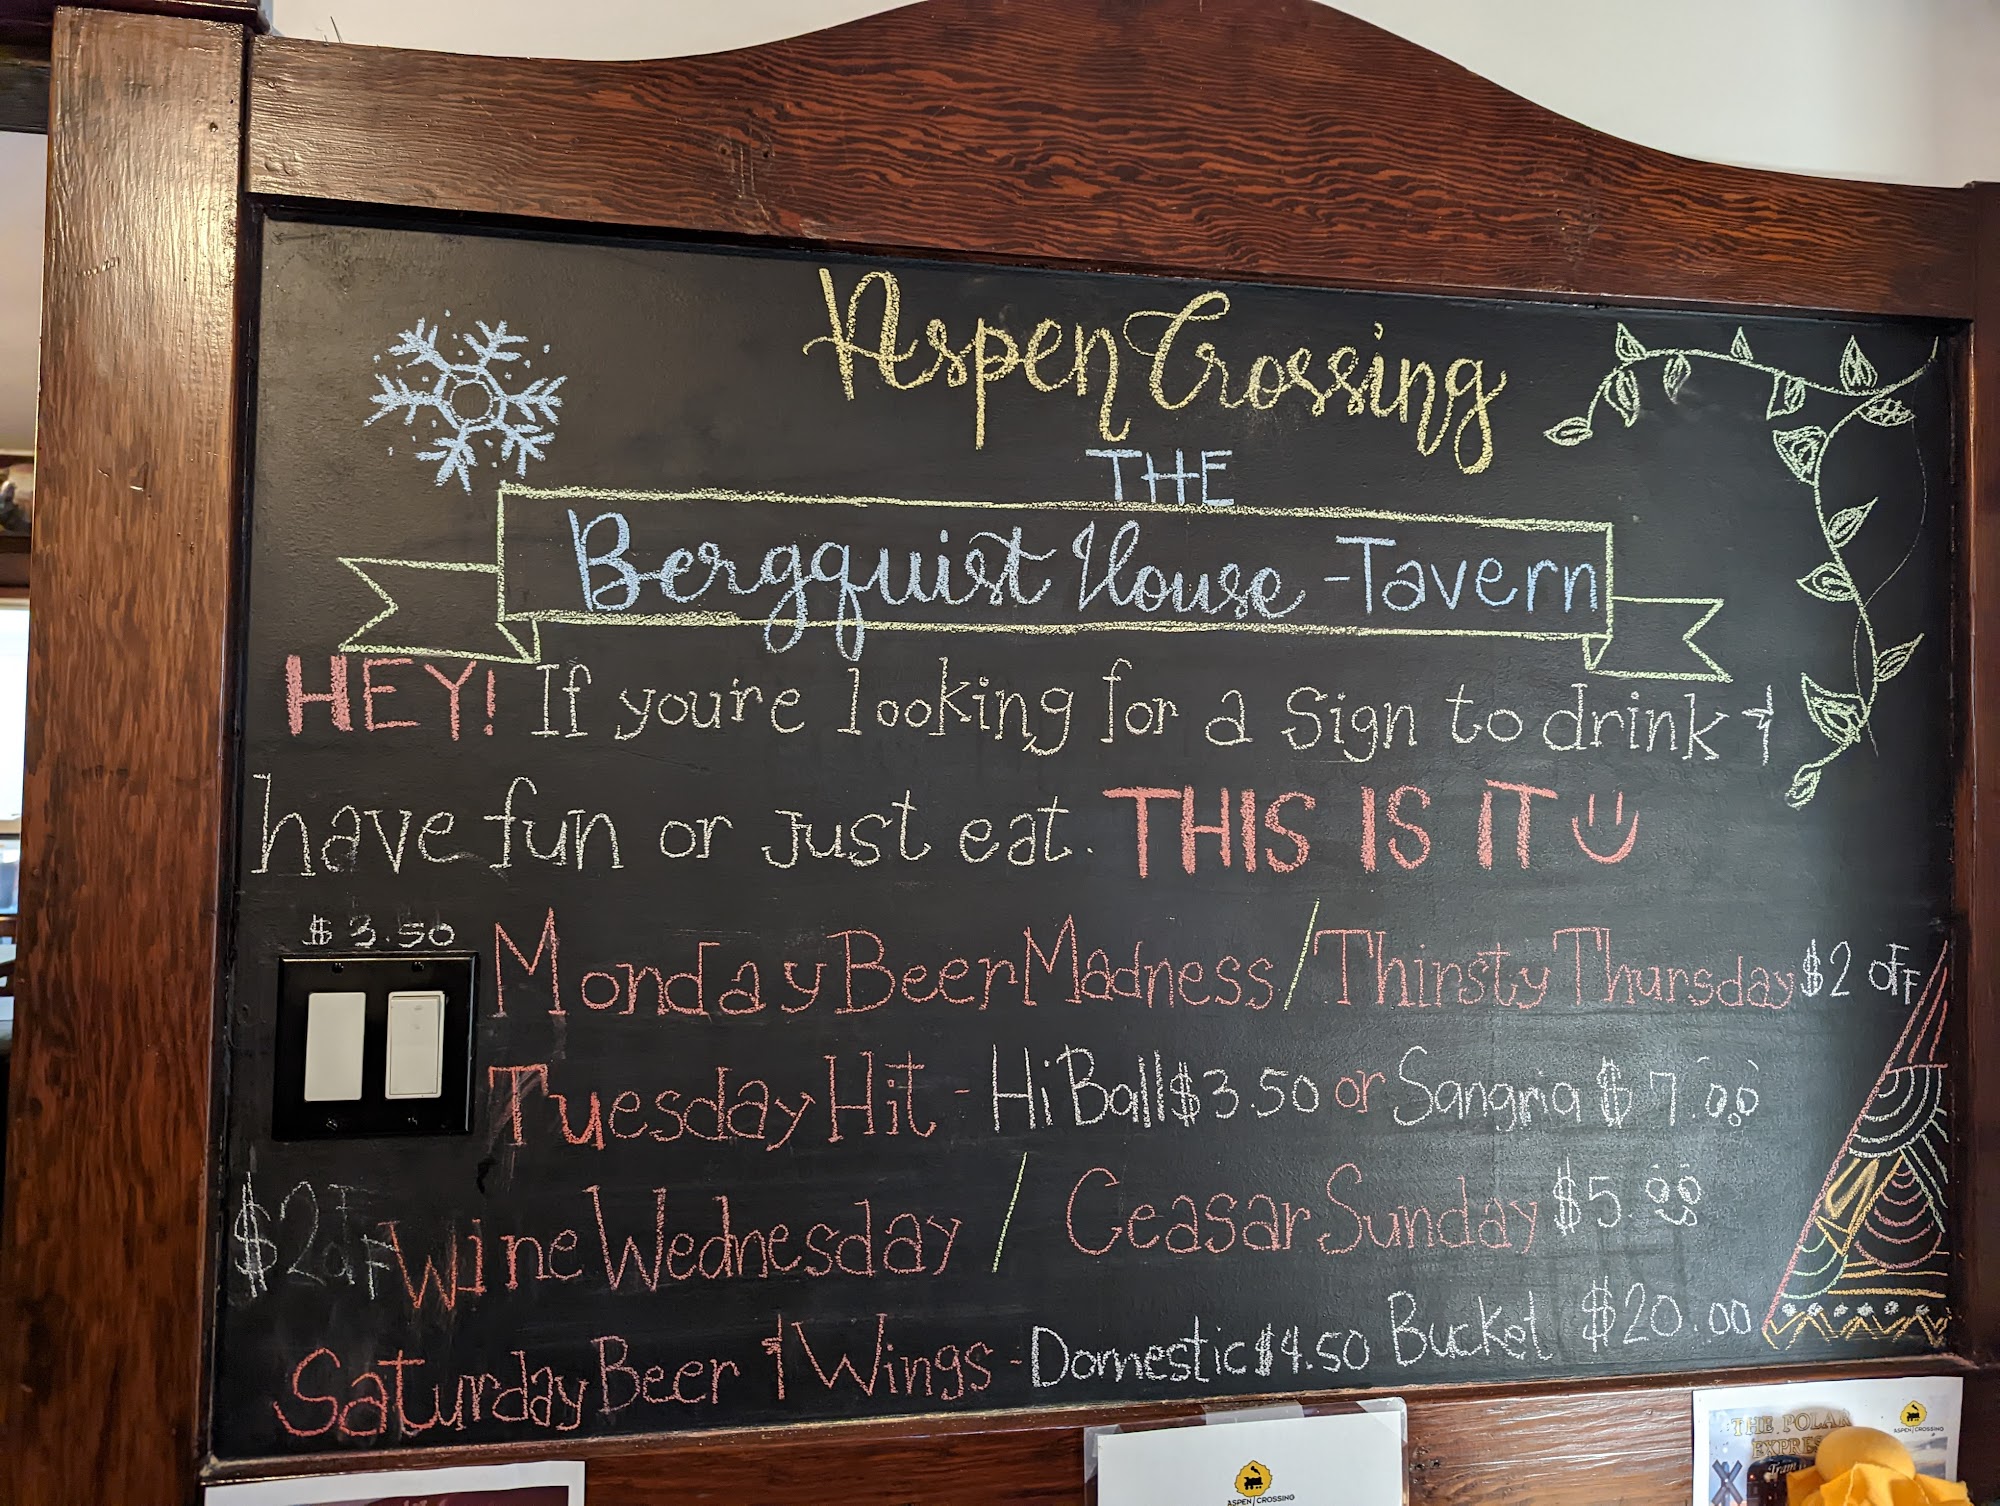 Aspen Crossing
THE
Bergquist House - Tavern
HEY! If you're looking for a sign to drink &
have fun or just eat. THIS IS IT
$3.50
Monday Beer Madness / Thirsty Thursday $2 OFF
Tuesday Hit - Hi Ball $3.50 or Sangria $7.00
$2 OFF Wine Wednesday / Ceasar Sunday $5.00
Saturday Beer & Wings - Domestic $4.50 Bucket $20.00
ASPEN CROSSING
THE POLAR
EXPRESS
Train
ASPEN CROSSING